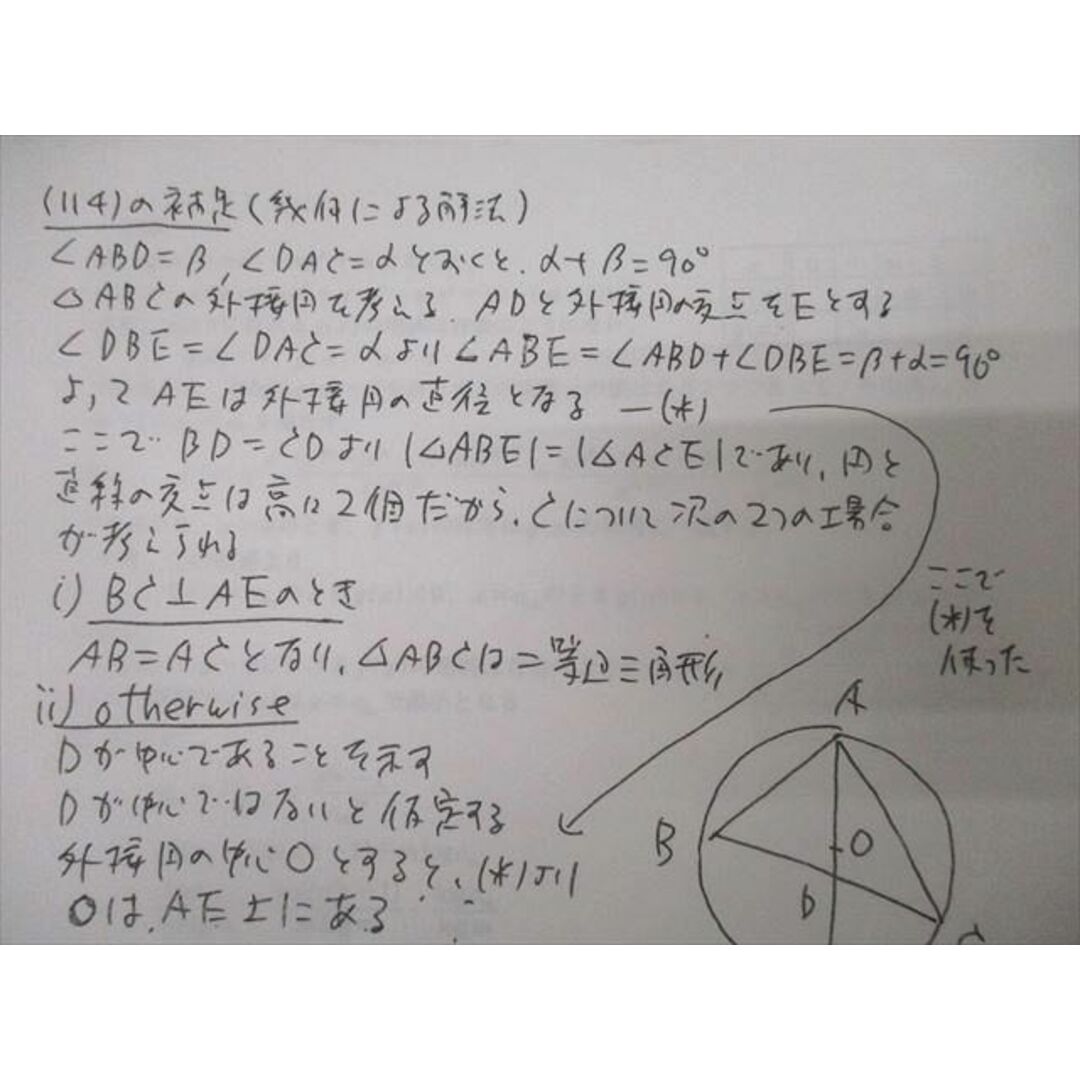 (114)の補足(幾何による解法)
∠ABD=β, ∠DAC=αとおくと、α+β=90°
△ABCの外接円を考える. ADと外接円の交点をEとする
∠DBE=∠DAC=αより∠ABE=∠ABD+∠DBE=β+α=90°
よってAEは外接円の直径となる —(*)
ここで BD=CDより|△ABE|=|△ACE|であり、円と
直線の交点は高々2個だから、Cについて次の2つの場合
が考えられる
i) BC⊥AEのとき
AB=ACとなり、△ABCは二等辺三角形
ii) otherwise
Dが中心であることを示す
Dが中心ではないと仮定する
外接円の中心Oとすると、(*)より
Oは、AE上にある
ここで
(*)を
使った
A
B
O
D
C